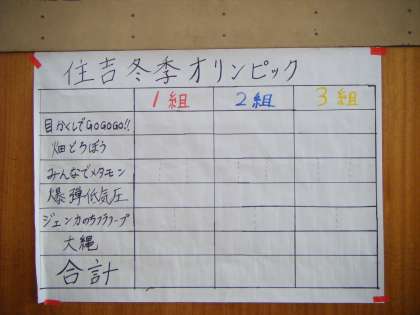 住吉冬季オリンピック
1組 2組 3組
目かくしでGOGOGO!!
畑どろぼう
みんなでメタモン
爆弾低気圧
ジェンカのちフラフープ
大縄
合計